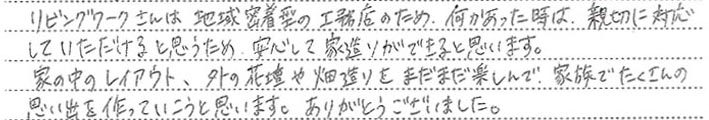 リビングワークさんは 地域密着型の工務店のため、何かあった時は、親切に対応
していただけると思うため、安心して家造りができると思います。
家の中のレイアウト、外の花壇や畑造りをまだまだ楽しんで、家族でたくさんの
思い出を作っていこうと思います。ありがとうございました。